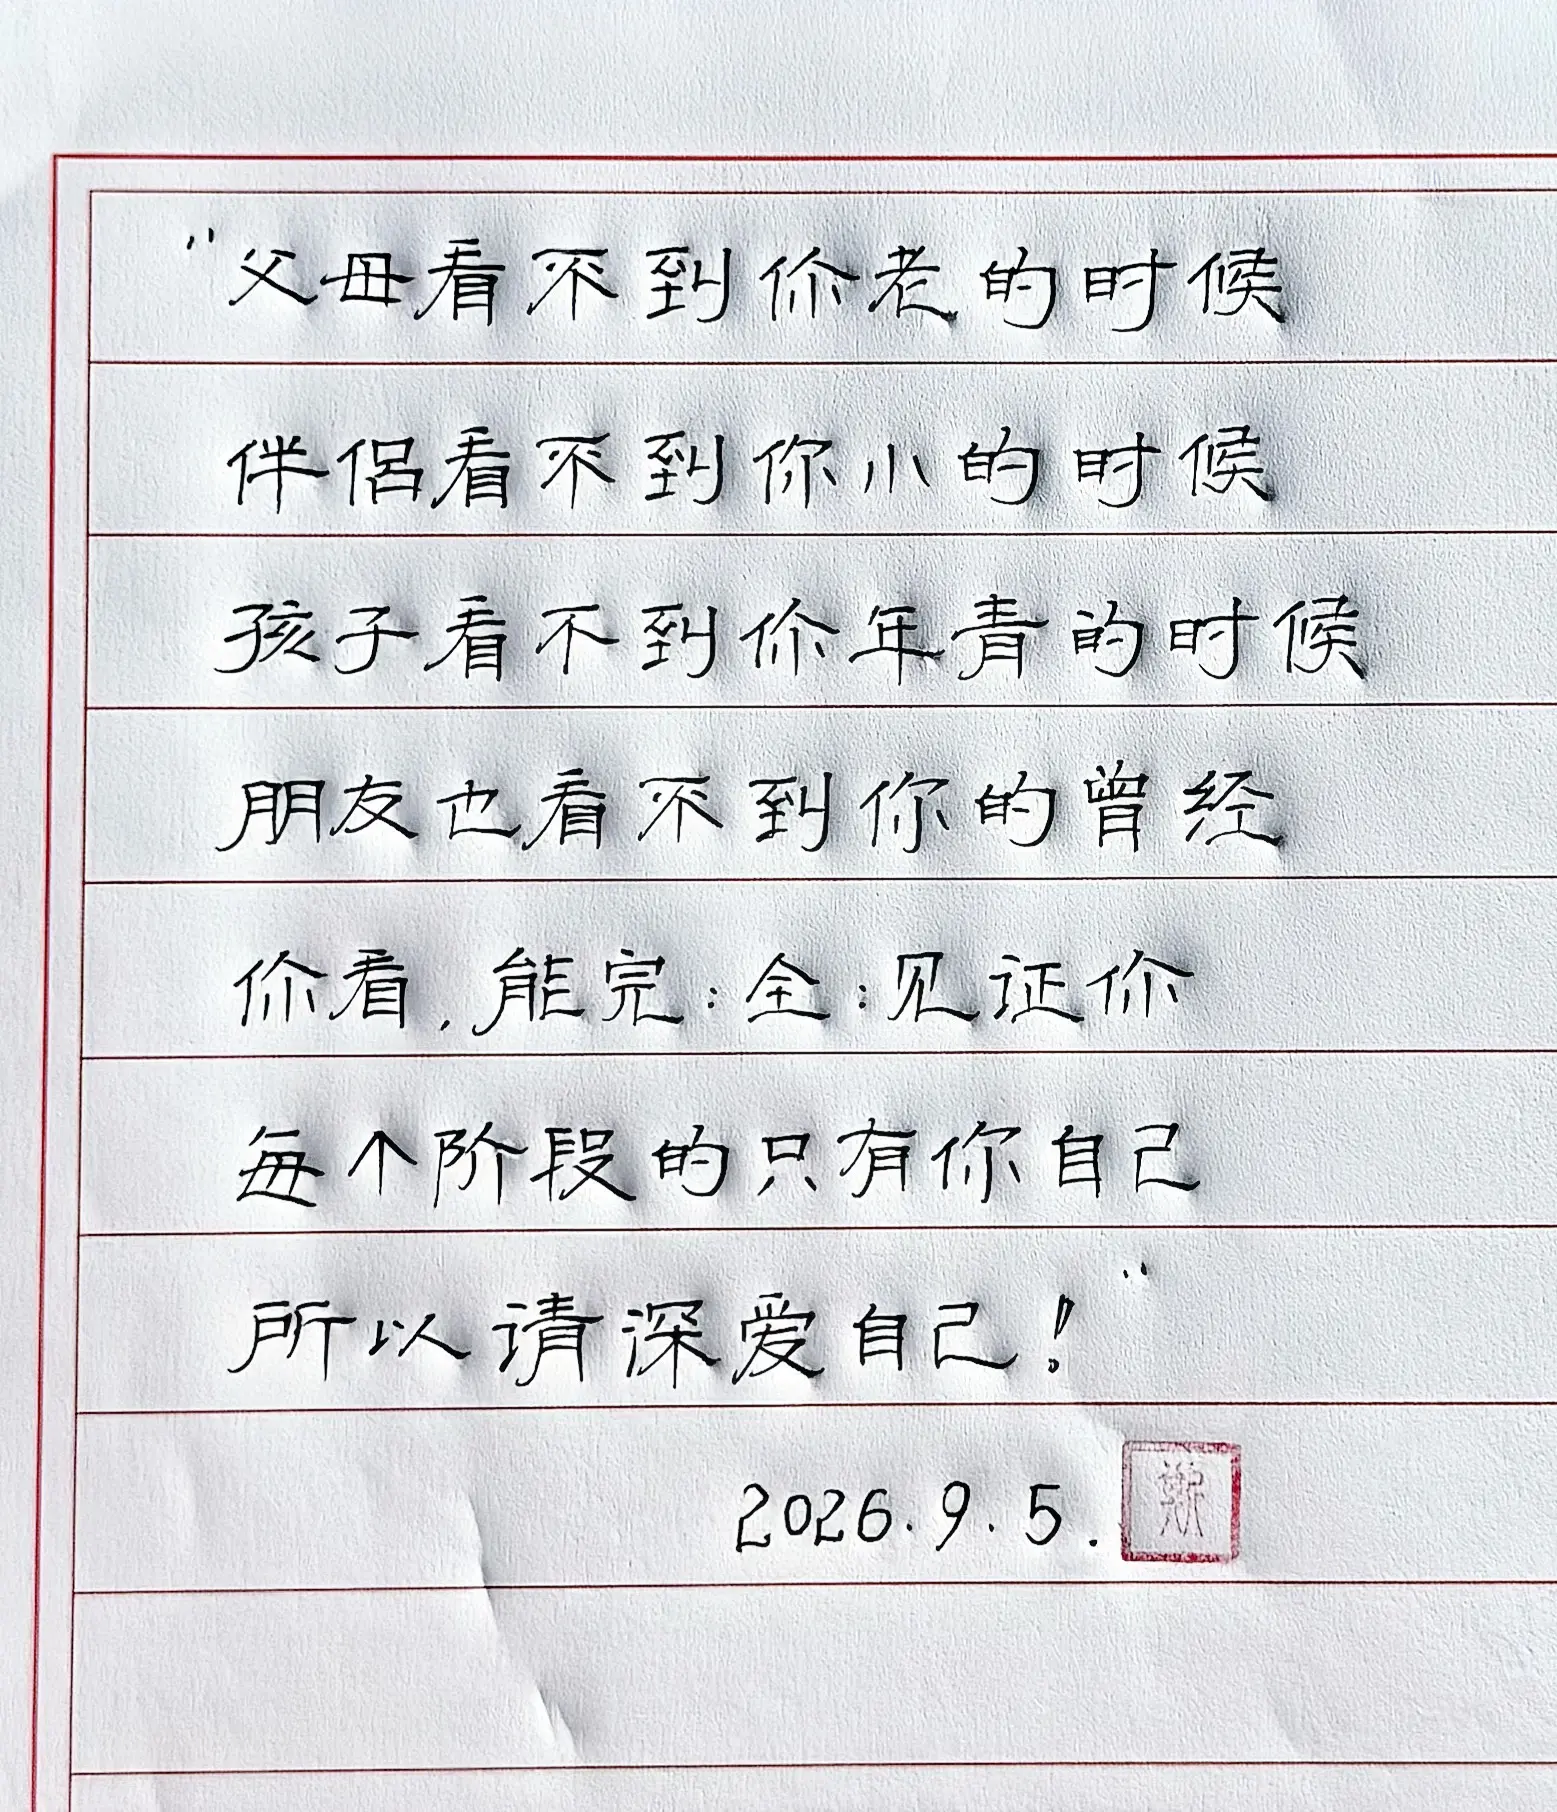 “父母看不到你老的时候
伴侣看不到你小的时候
孩子看不到你年青的时候
朋友也看不到你的曾经
你看,能完:全:见证你
每个阶段的只有你自己
所以请深爱自己!”
2026.9.5.